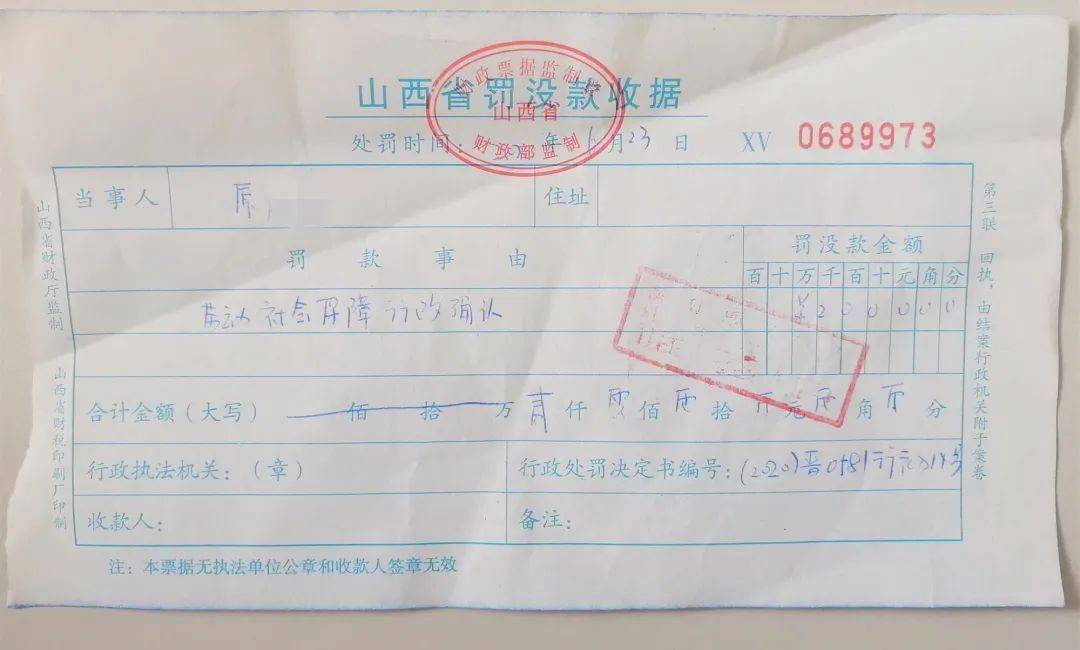 山西省罚没款收据
财政票据监制章
山西省
财政部监制
处罚时间： 年 月23日 XV 0689973
当事人 住址
罚款事由 罚没款金额
百十万千百十元角分
劳动社会保障行政确认 ¥200000
合计金额（大写） 佰 拾 万 仟 佰 拾 元 角 分
行政执法机关：（章） 行政处罚决定书编号：(2020)晋0581行
收款人： 备注：
注：本票据无执法单位公章和收款人签章无效
山西省财政厅监制
山西省财税印刷厂印制
第三联 回执，由结案行政机关附于案卷